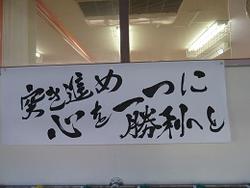 突き進め
心を一つに
勝利へと